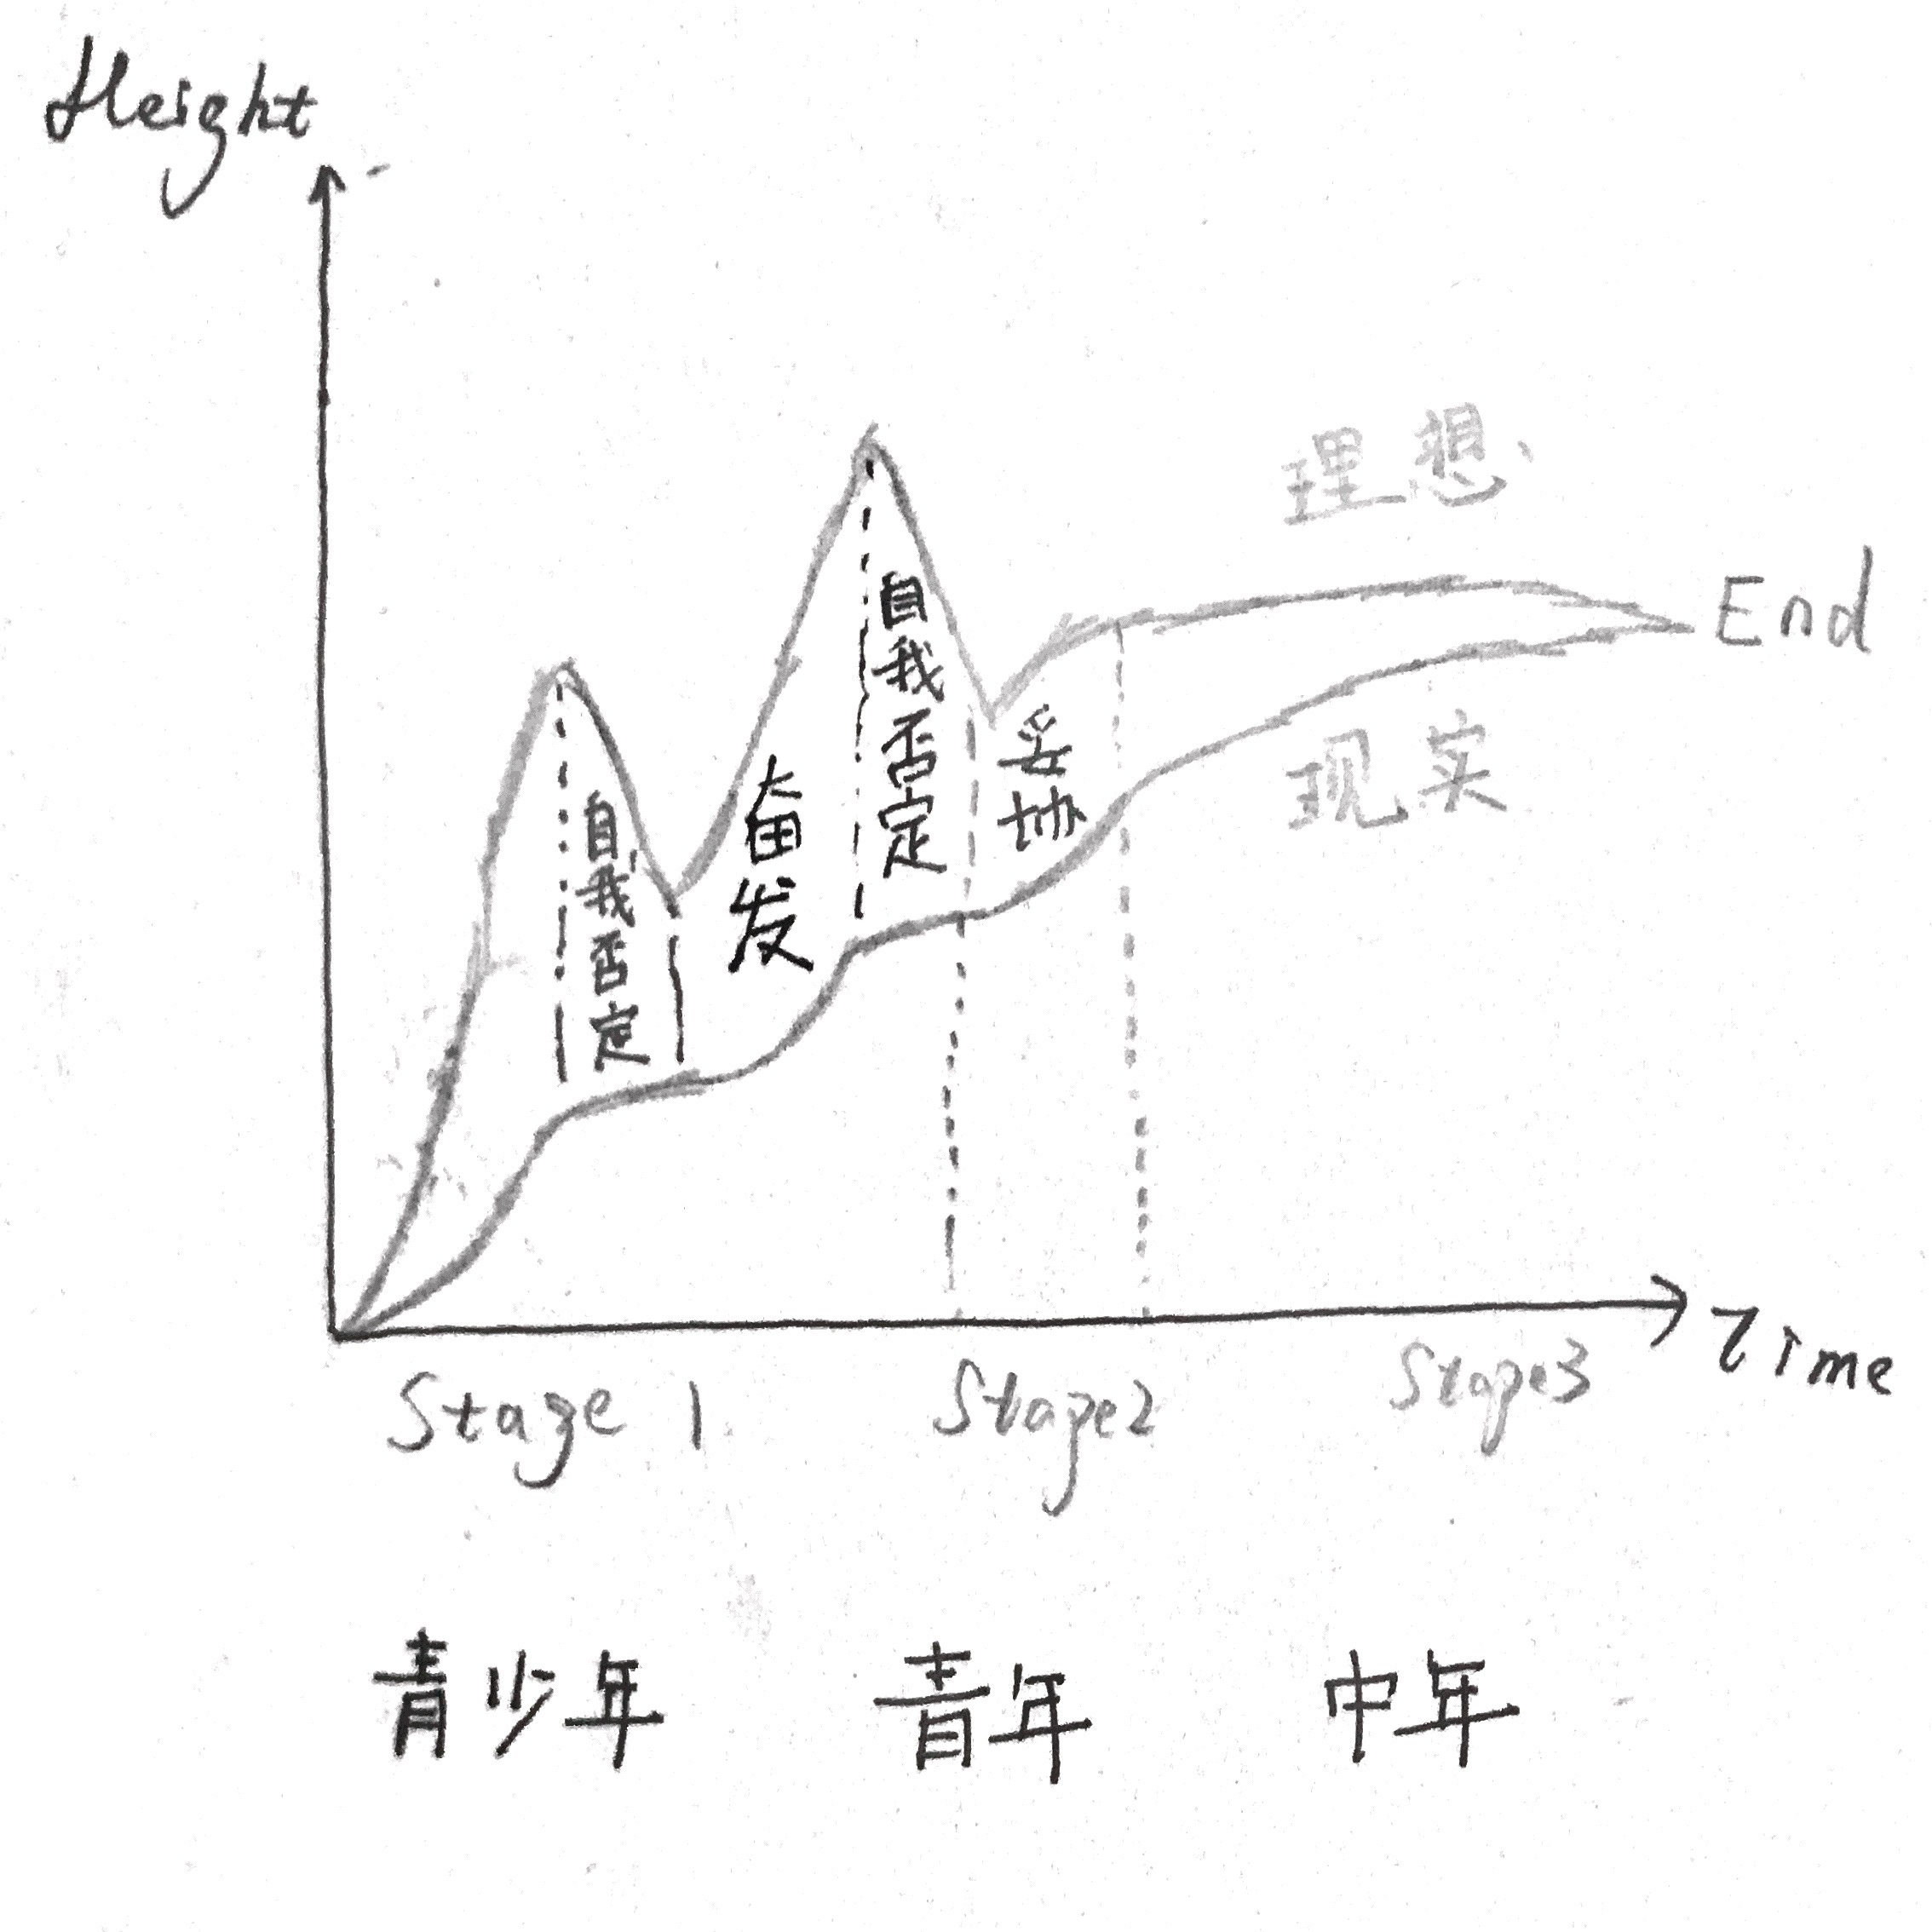 Height
理想
End
自我否定
妥协
现实
奋发
自我否定
Time
Stage 1
Stage2
Stage3
青少年
青年
中年